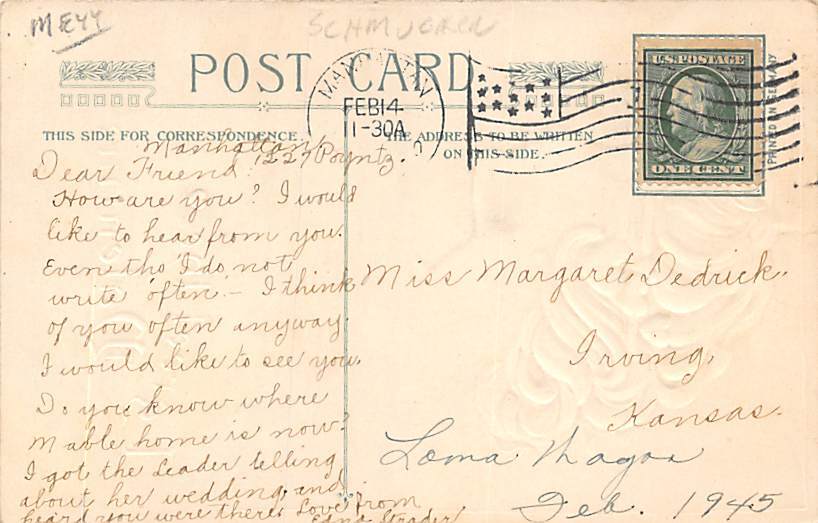 MEYY
SCHMUCKER
POST CARD
MANHATTAN
FEB 14
11-30A
U.S. POSTAGE
ONE CENT
PRINTED IN GERMANY
THIS SIDE FOR CORRESPONDENCE.
THE ADDRESS TO BE WRITTEN
ON THIS SIDE.
Manhattan
1227 Poyntz.
Dear Friend:
How are you? I would
like to hear from you.
Even tho' I do not
write often - I think
of you often anyway.
I would like to see you.
Do you know where
Mable home is now?
I got the Leader telling
about her wedding, and
heard you were there. Love from
Edna Strader
Miss Margaret Dedrick.
Irving,
Kansas.
Loma
Feb. 1945